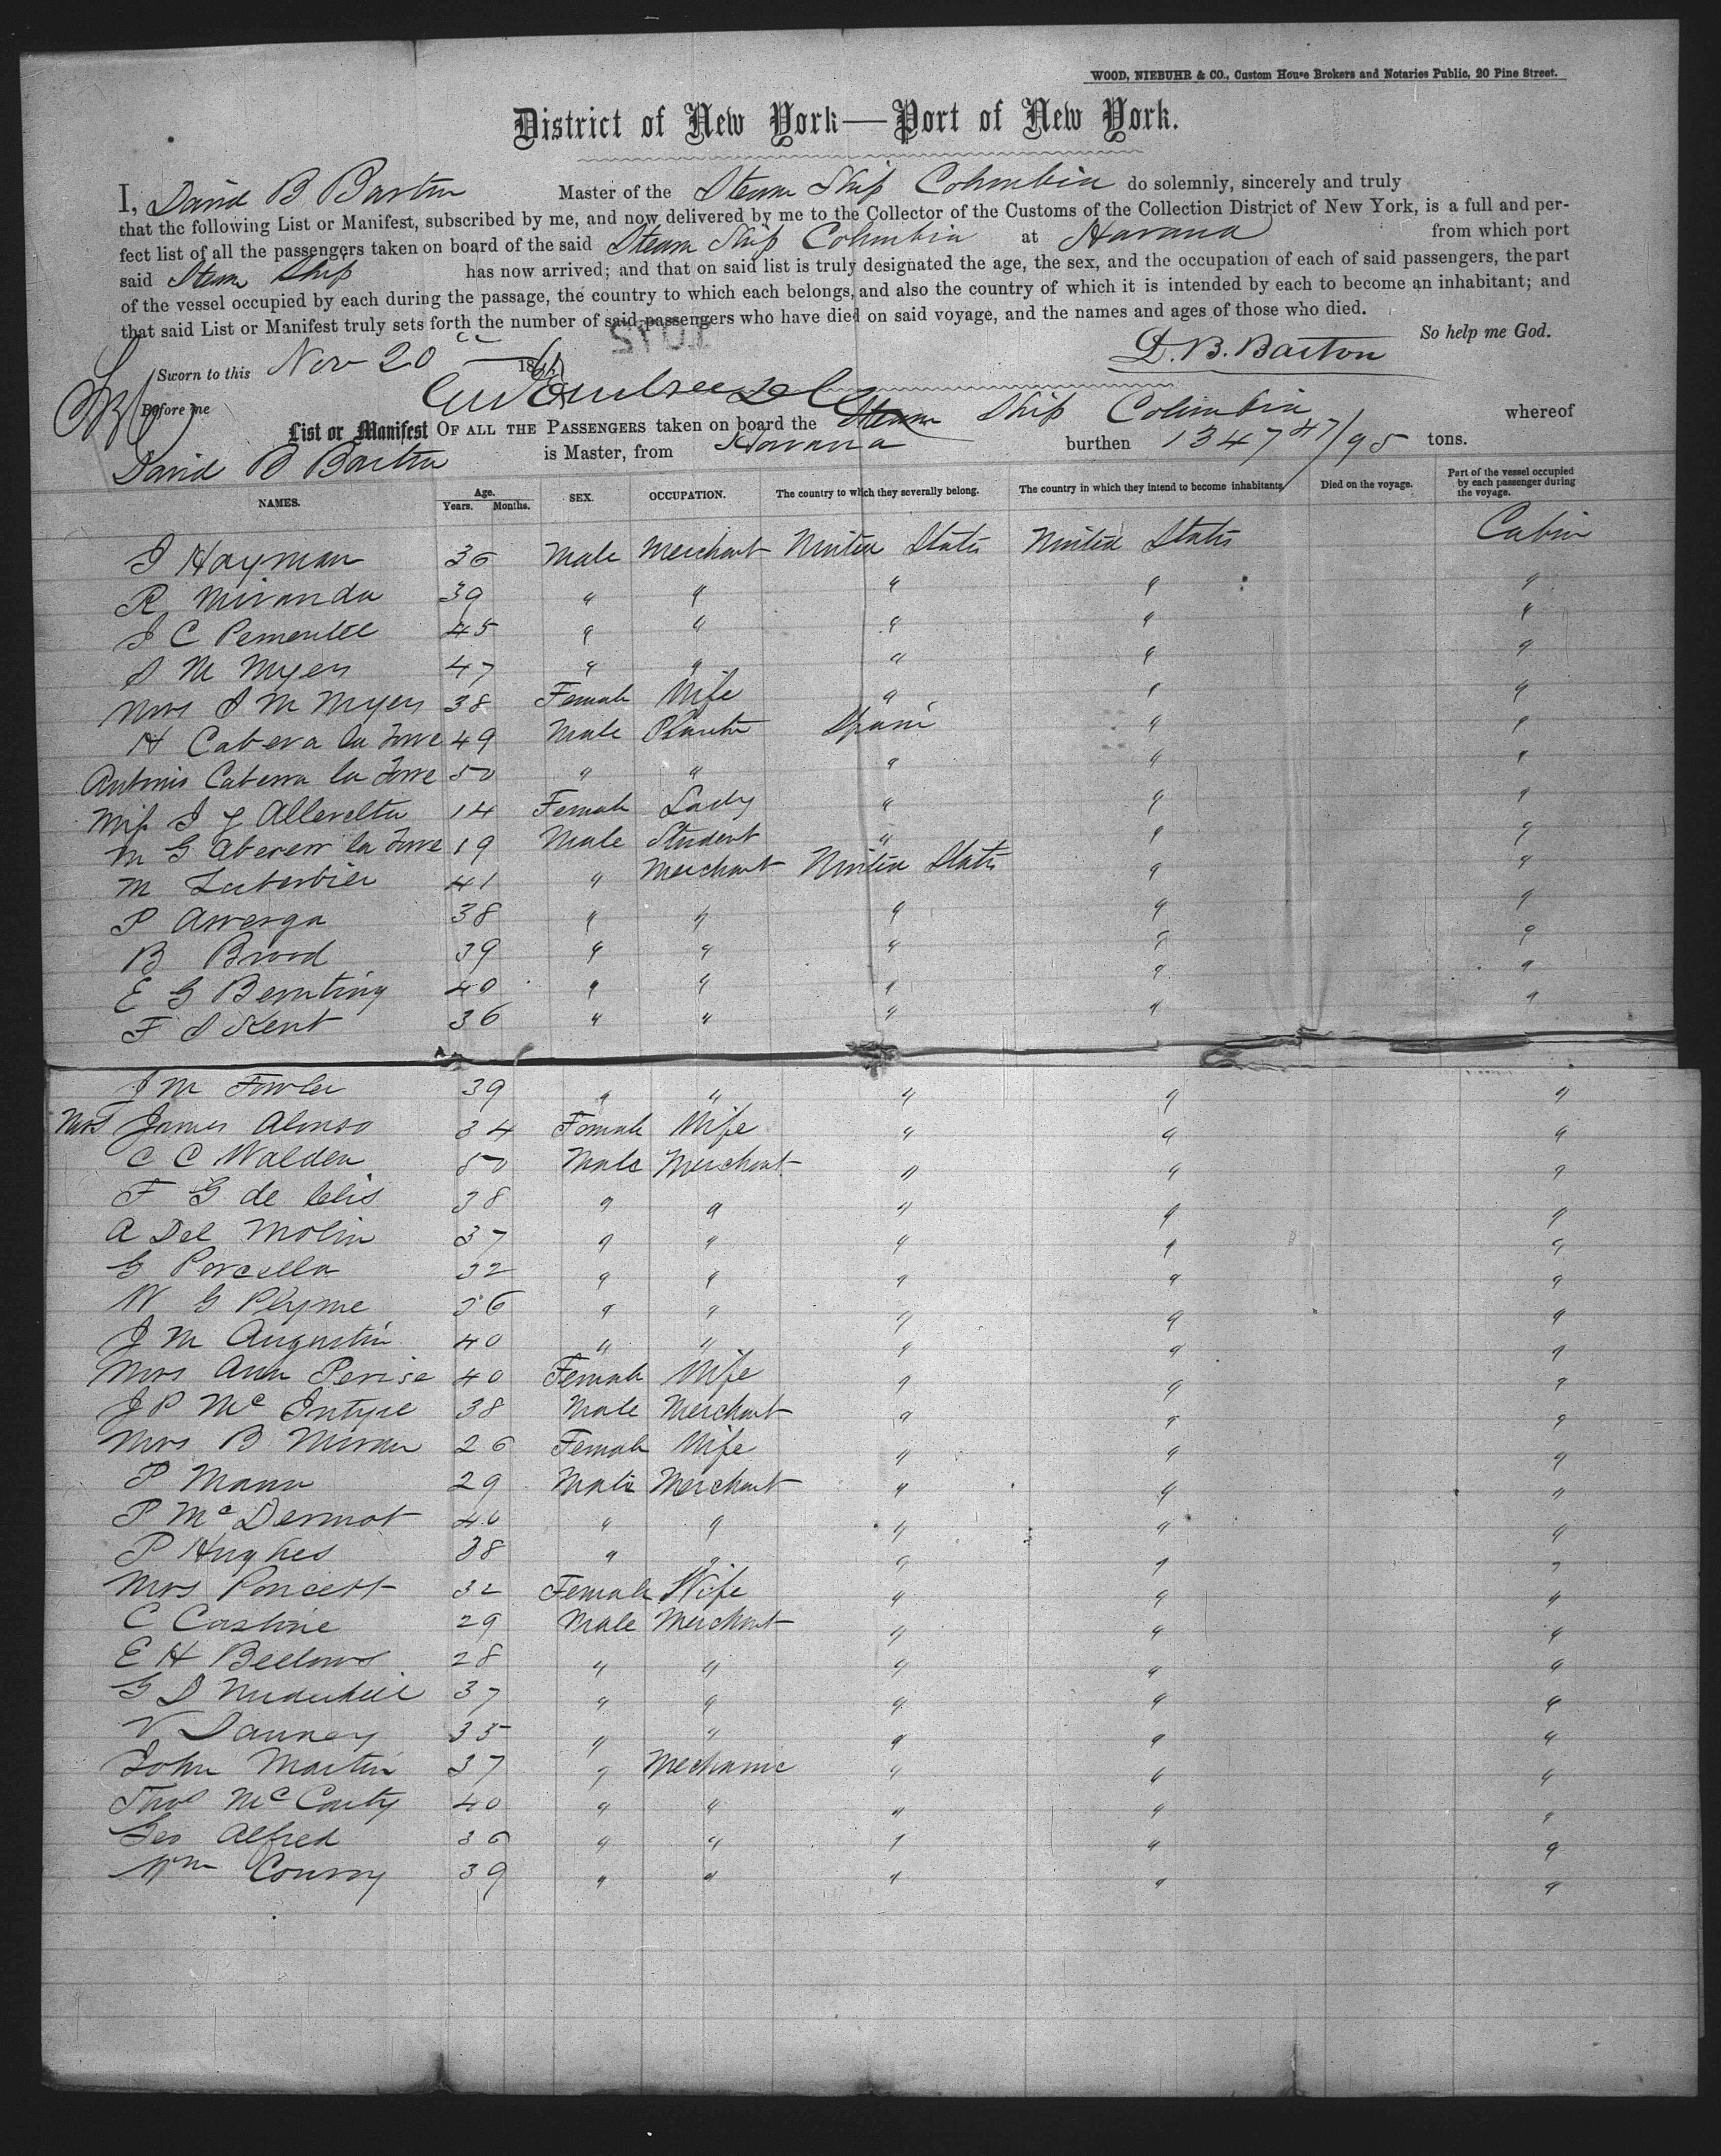 WOOD, NIEBUHR & CO., Custom House Brokers and Notaries Public, 20 Pine Street.
District of New York—Port of New York.
I, David B Barton Master of the Steam Ship Columbia do solemnly, sincerely and truly
that the following List or Manifest, subscribed by me, and now delivered by me to the Collector of the Customs of the Collection District of New York, is a full and per-
fect list of all the passengers taken on board of the said Steam Ship Columbia at Havana from which port
said Steam Ship has now arrived; and that on said list is truly designated the age, the sex, and the occupation of each of said passengers, the part
of the vessel occupied by each during the passage, the country to which each belongs, and also the country of which it is intended by each to become an inhabitant; and
that said List or Manifest truly sets forth the number of said passengers who have died on said voyage, and the names and ages of those who died.
So help me God.
Sworn to this Nov 20 186 D. B. Barton
Before me
List or Manifest OF ALL THE PASSENGERS taken on board the Steam Ship Columbia whereof
David B Barton is Master, from Havana burthen 1347 47/95 tons.
NAMES. Age. Years. Months. SEX. OCCUPATION. The country to which they severally belong. The country in which they intend to become inhabitants. Died on the voyage. Part of the vessel occupied by each passenger during the voyage.
J Hayman 36 Male Merchant United States United States Cabin
R Miranda 39 " " " " "
J C Pementel 45 " " " " "
S M Myers 47 " " " " "
Mrs S M Myers 38 Female Wife " " "
H Cabera la Torre 49 Male Planter Spain " "
Antonio Caberra la Torre 50 " " " " "
Miss J Y 14 Female Lady " " "
M G la Torre 19 Male Student " " "
M 41 " Merchant United States " "
P Arreaga 38 " " " " "
B Brood 39 " " " " "
E G Bernting 40 " " " " "
F S Kent 36 " " " " "
J M Fowler 39 " " " " "
Mrs James Alonso 34 Female Wife " " "
C C Walden 50 Male Merchant " " "
F G de Celis 38 " " " " "
A Del Molin 37 " " " " "
G Porcella 32 " " " " "
W G Plyme 36 " " " " "
J M Augustin 40 " " " " "
Mrs Ann Perise 40 Female Wife " " "
J P McIntyre 38 Male Merchant " " "
Mrs B Moran 26 Female Wife " " "
P Mann 29 Male Merchant " " "
P McDermot 40 " " " " "
P Hughes 38 " " " " "
Mrs Poncett 32 Female Wife " " "
C Castine 29 Male Merchant " " "
E H Bellows 28 " " " " "
G D Underhill 37 " " " " "
V Dauney 35 " " " " "
John Martin 37 " Mechanic " " "
Thos McCarty 40 " " " " "
Geo Alfred 36 " " " " "
Wm Conroy 39 " " " " "